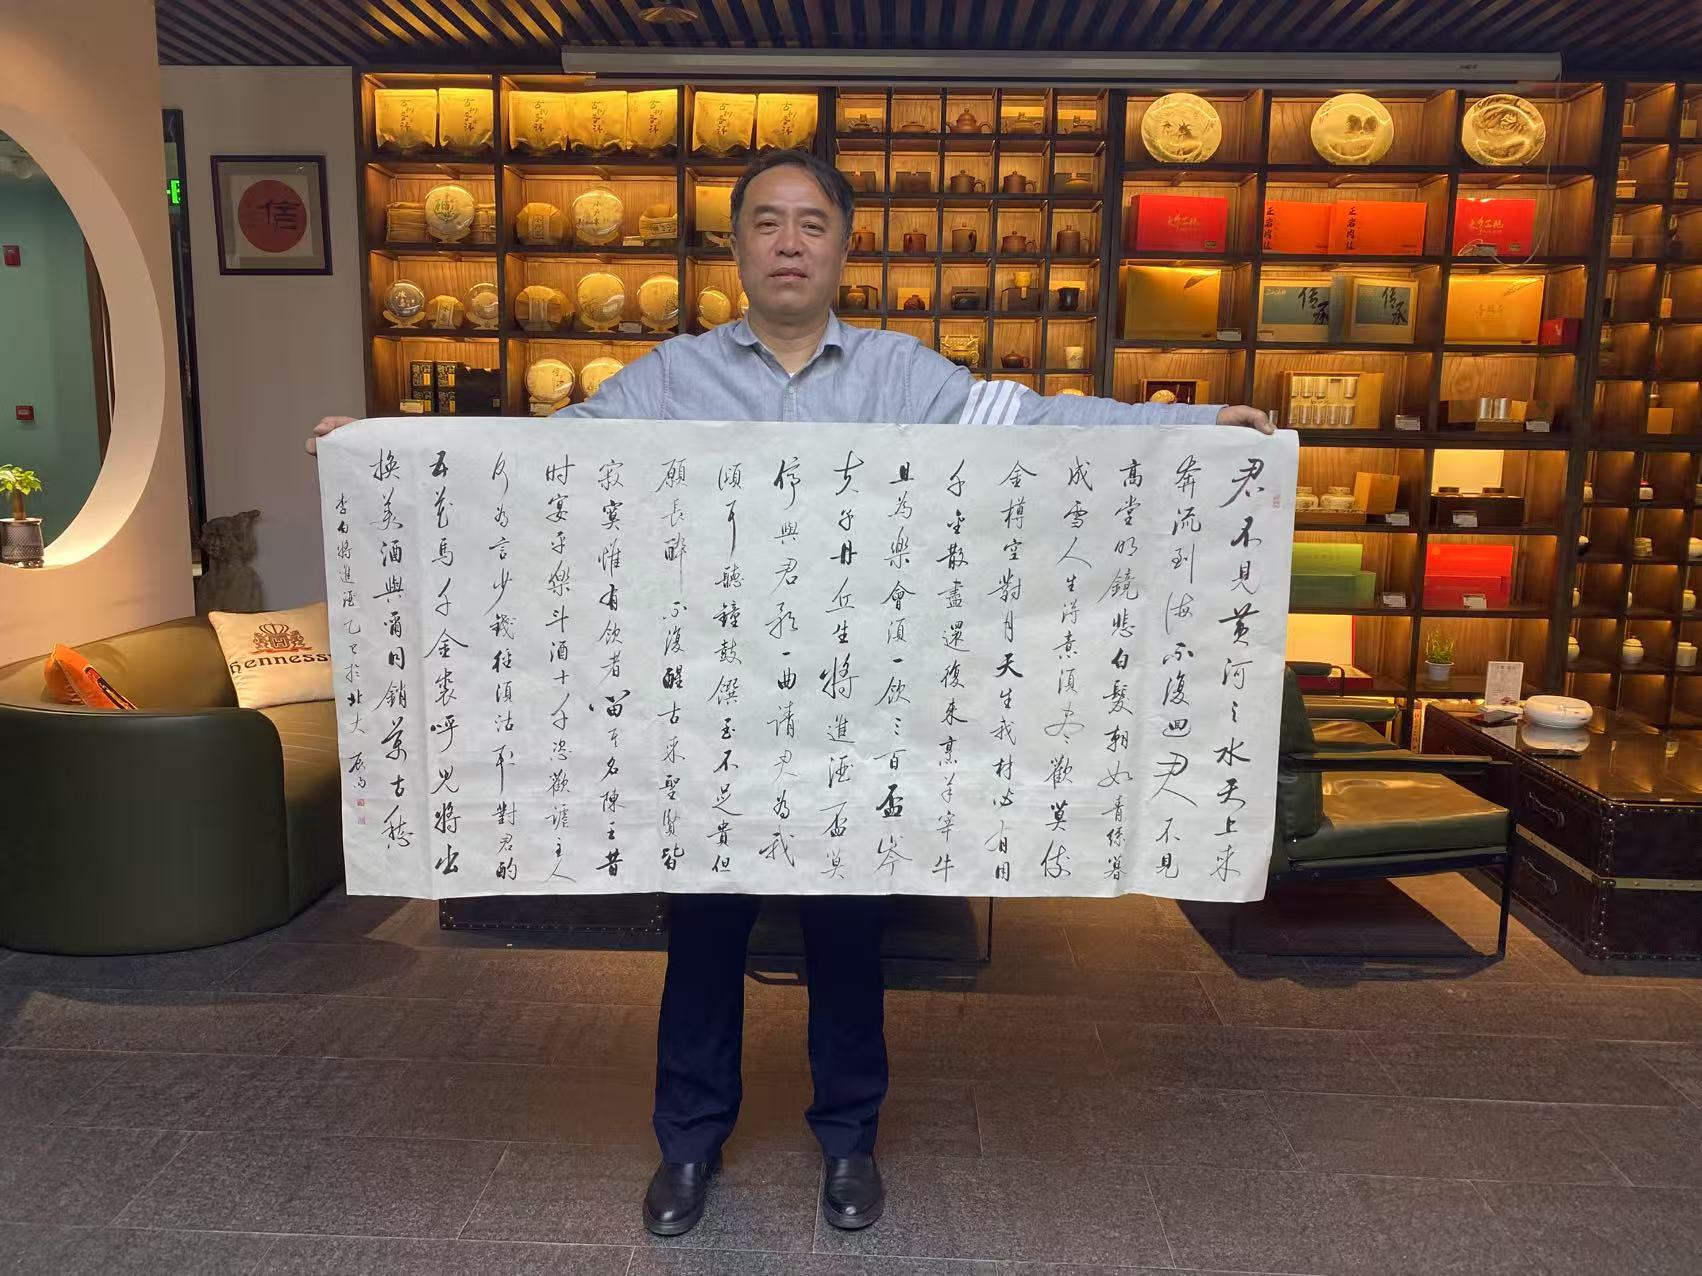 君不見黄河之水天上来
奔流到海不復迴君不見
高堂明鏡悲白髮朝如青絲暮
成雪人生得意須尽歡莫使
金樽空對月天生我材必有用
千金散盡還復来烹羊宰牛
且為樂會須一飲三百盃岑
夫子丹丘生將進酒盃莫
停與君歌一曲請君為我
傾耳聽鐘鼓饌玉不足貴但
願長醉不復醒古来聖賢皆
寂寞惟有飲者留其名陳王昔
时宴平樂斗酒十千恣歡謔主人
何為言少錢徑須沽取對君酌
五花馬千金裘呼児將出
換美酒與爾同銷萬古愁
李白將進酒乙巳於北大
信
Hennessy
正岩肉桂
正岩肉桂
大红袍
传承
传承